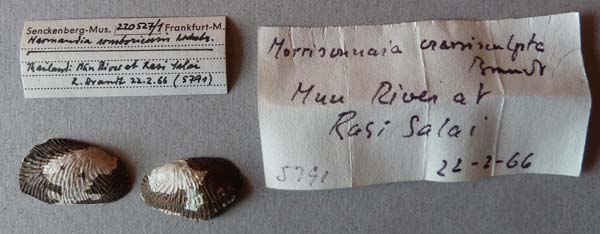 Senckenberg-Mus. 220527/1 Frankfurt-M.
Thailand: Mun River at Rasi Salai
R. Brandt 22.2.66 (5791)
Brandt
Mun River at
Rasi Salai
5791
22-2-66